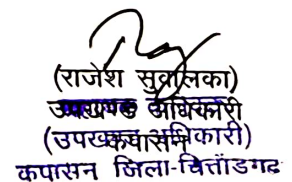 (राजेश सुवालका)
उपखण्ड अधिकारी
(उपखण्ड अधिकारी)
कपासन जिला-चित्तौडगढ